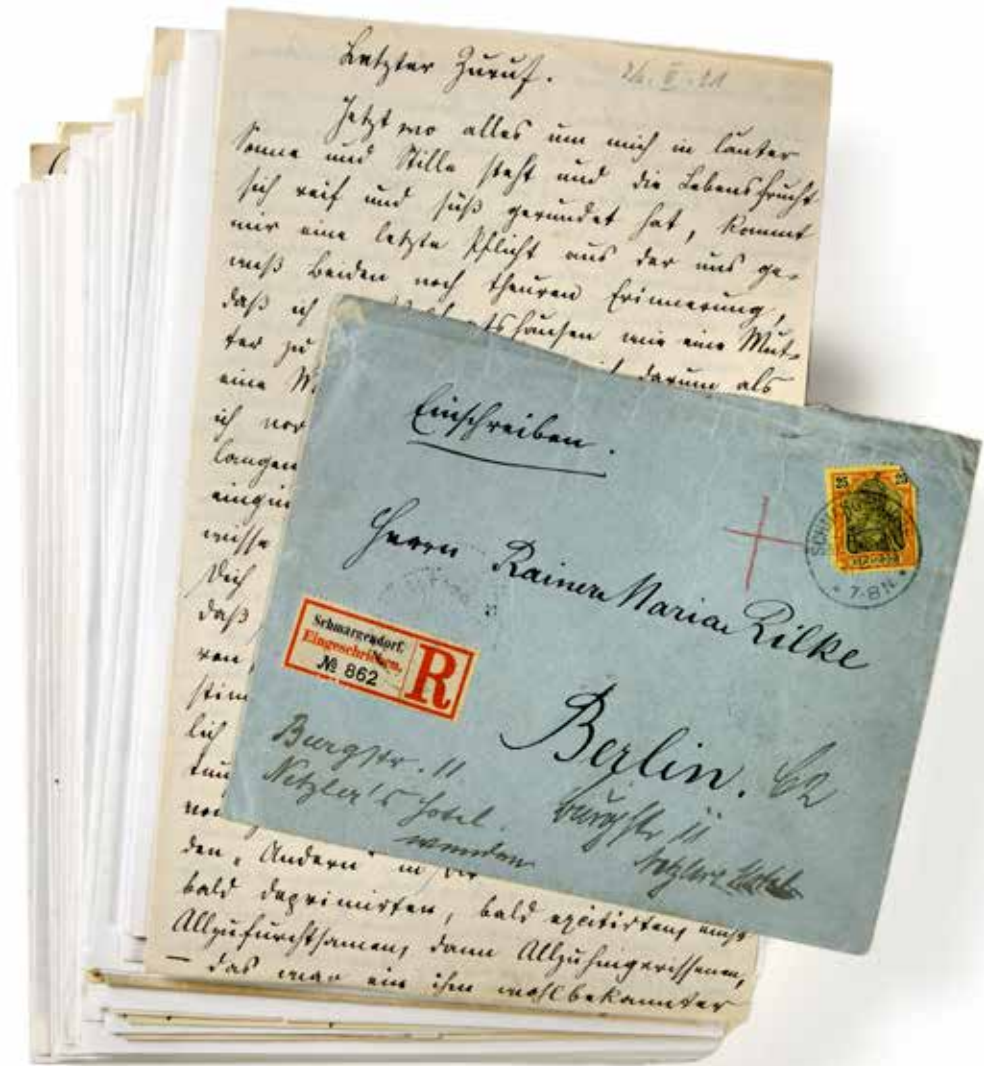 Letzter Zuruf.
26. II. 01
Jetzt wo alles um mich in lauter
Sonne und Stille steht und die Lebensfrucht
sich reif und süß gerundet hat, kommt
mir eine letzte Pflicht aus der uns ge-
wiß beiden noch theuren Erinnerung,
daß ich wie eine Mut-
ter zu darum als
eine
ich vor
langen
eingin
wisse
Dich
daß
ren,
stim
lich
den „Andern“ in Dir
bald deprimirten, bald excitirten, einst
Allzufurchtsamen, dann Allzuhingerissenen,
— das war ein ihm wohlbekannter
Einschreiben.
25 25
SCHM
7-8N
Herrn Rainer Maria Rilke
Schmargendorf.
Eingeschrieben.
№ 862
R
Berlin. C2
Burgstr. 11
Netzler's Hotel.
Burgstr 11
Netzlers Hotel